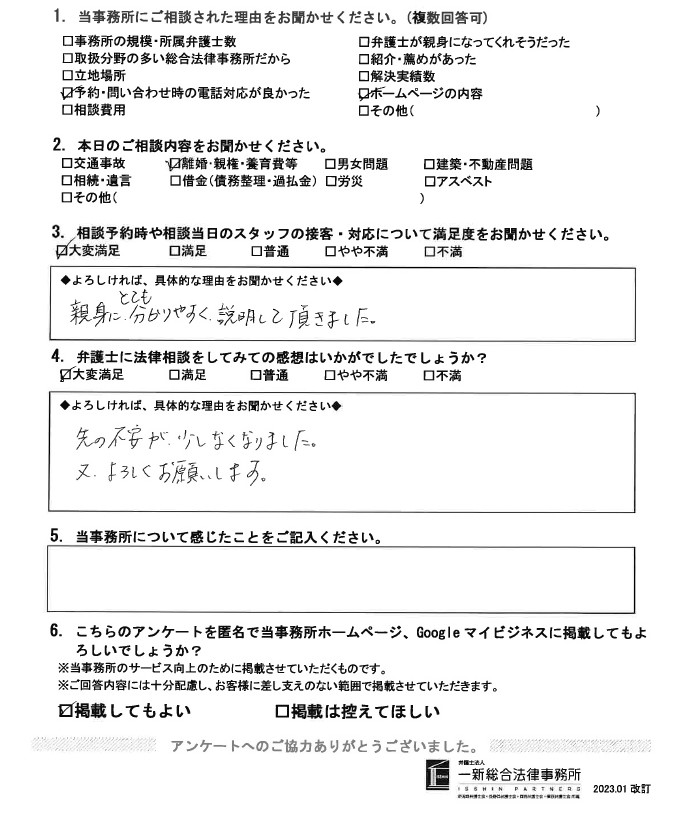 1. 当事務所にご相談された理由をお聞かせください。(複数回答可)
□事務所の規模・所属弁護士数 □弁護士が親身になってくれそうだった
□取扱分野の多い総合法律事務所だから □紹介・薦めがあった
□立地場所 □解決実績数
☑予約・問い合わせ時の電話対応が良かった ☑ホームページの内容
□相談費用 □その他( )
2. 本日のご相談内容をお聞かせください。
□交通事故 ☑離婚・親権・養育費等 □男女問題 □建築・不動産問題
□相続・遺言 □借金(債務整理・過払金) □労災 □アスベスト
□その他( )
3. 相談予約時や相談当日のスタッフの接客・対応について満足度をお聞かせください。
☑大変満足 □満足 □普通 □やや不満 □不満
◆よろしければ、具体的な理由をお聞かせください◆
とても
親身に、分かりやすく、説明して頂きました。
4. 弁護士に法律相談をしてみての感想はいかがでしたでしょうか?
☑大変満足 □満足 □普通 □やや不満 □不満
◆よろしければ、具体的な理由をお聞かせください◆
先の不安が、少しなくなりました。
又、よろしくお願いします。
5. 当事務所について感じたことをご記入ください。
6. こちらのアンケートを匿名で当事務所ホームページ、Googleマイビジネスに掲載してもよ
ろしいでしょうか?
※当事務所のサービス向上のために掲載させていただくものです。
※ご回答内容には十分配慮し、お客様に差し支えのない範囲で掲載させていただきます。
☑掲載してもよい □掲載は控えてほしい
アンケートへのご協力ありがとうございました。
弁護士法人
一新総合法律事務所
ISSHIN PARTNERS
2023.01 改訂